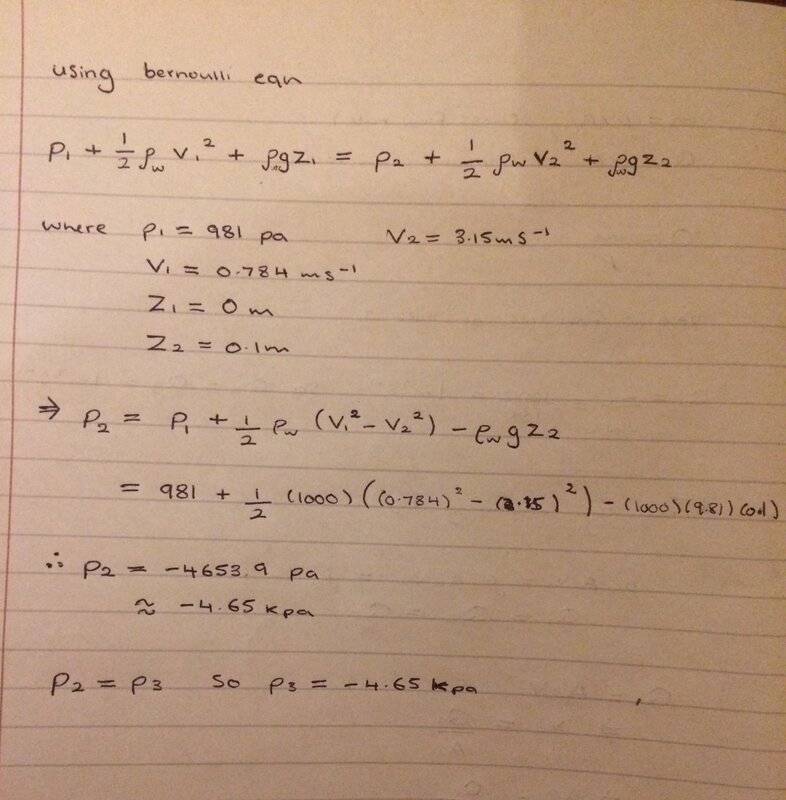 using bernoulli eqn
P₁ + 1/2 ρw V₁² + ρgz₁ = P₂ + 1/2 ρw V₂² + ρwgz₂
where P₁ = 981 pa V₂ = 3.15ms⁻¹
V₁ = 0.784 ms⁻¹
Z₁ = 0 m
Z₂ = 0.1m
⇒ P₂ = P₁ + 1/2 ρw (V₁² - V₂²) - ρw g Z₂
= 981 + 1/2 (1000) ((0.784)² - (3.15)²) - (1000)(9.81)(0.1)
∴ P₂ = -4653.9 pa
≈ -4.65 kpa
P₂ = P₃ so P₃ = -4.65 kpa